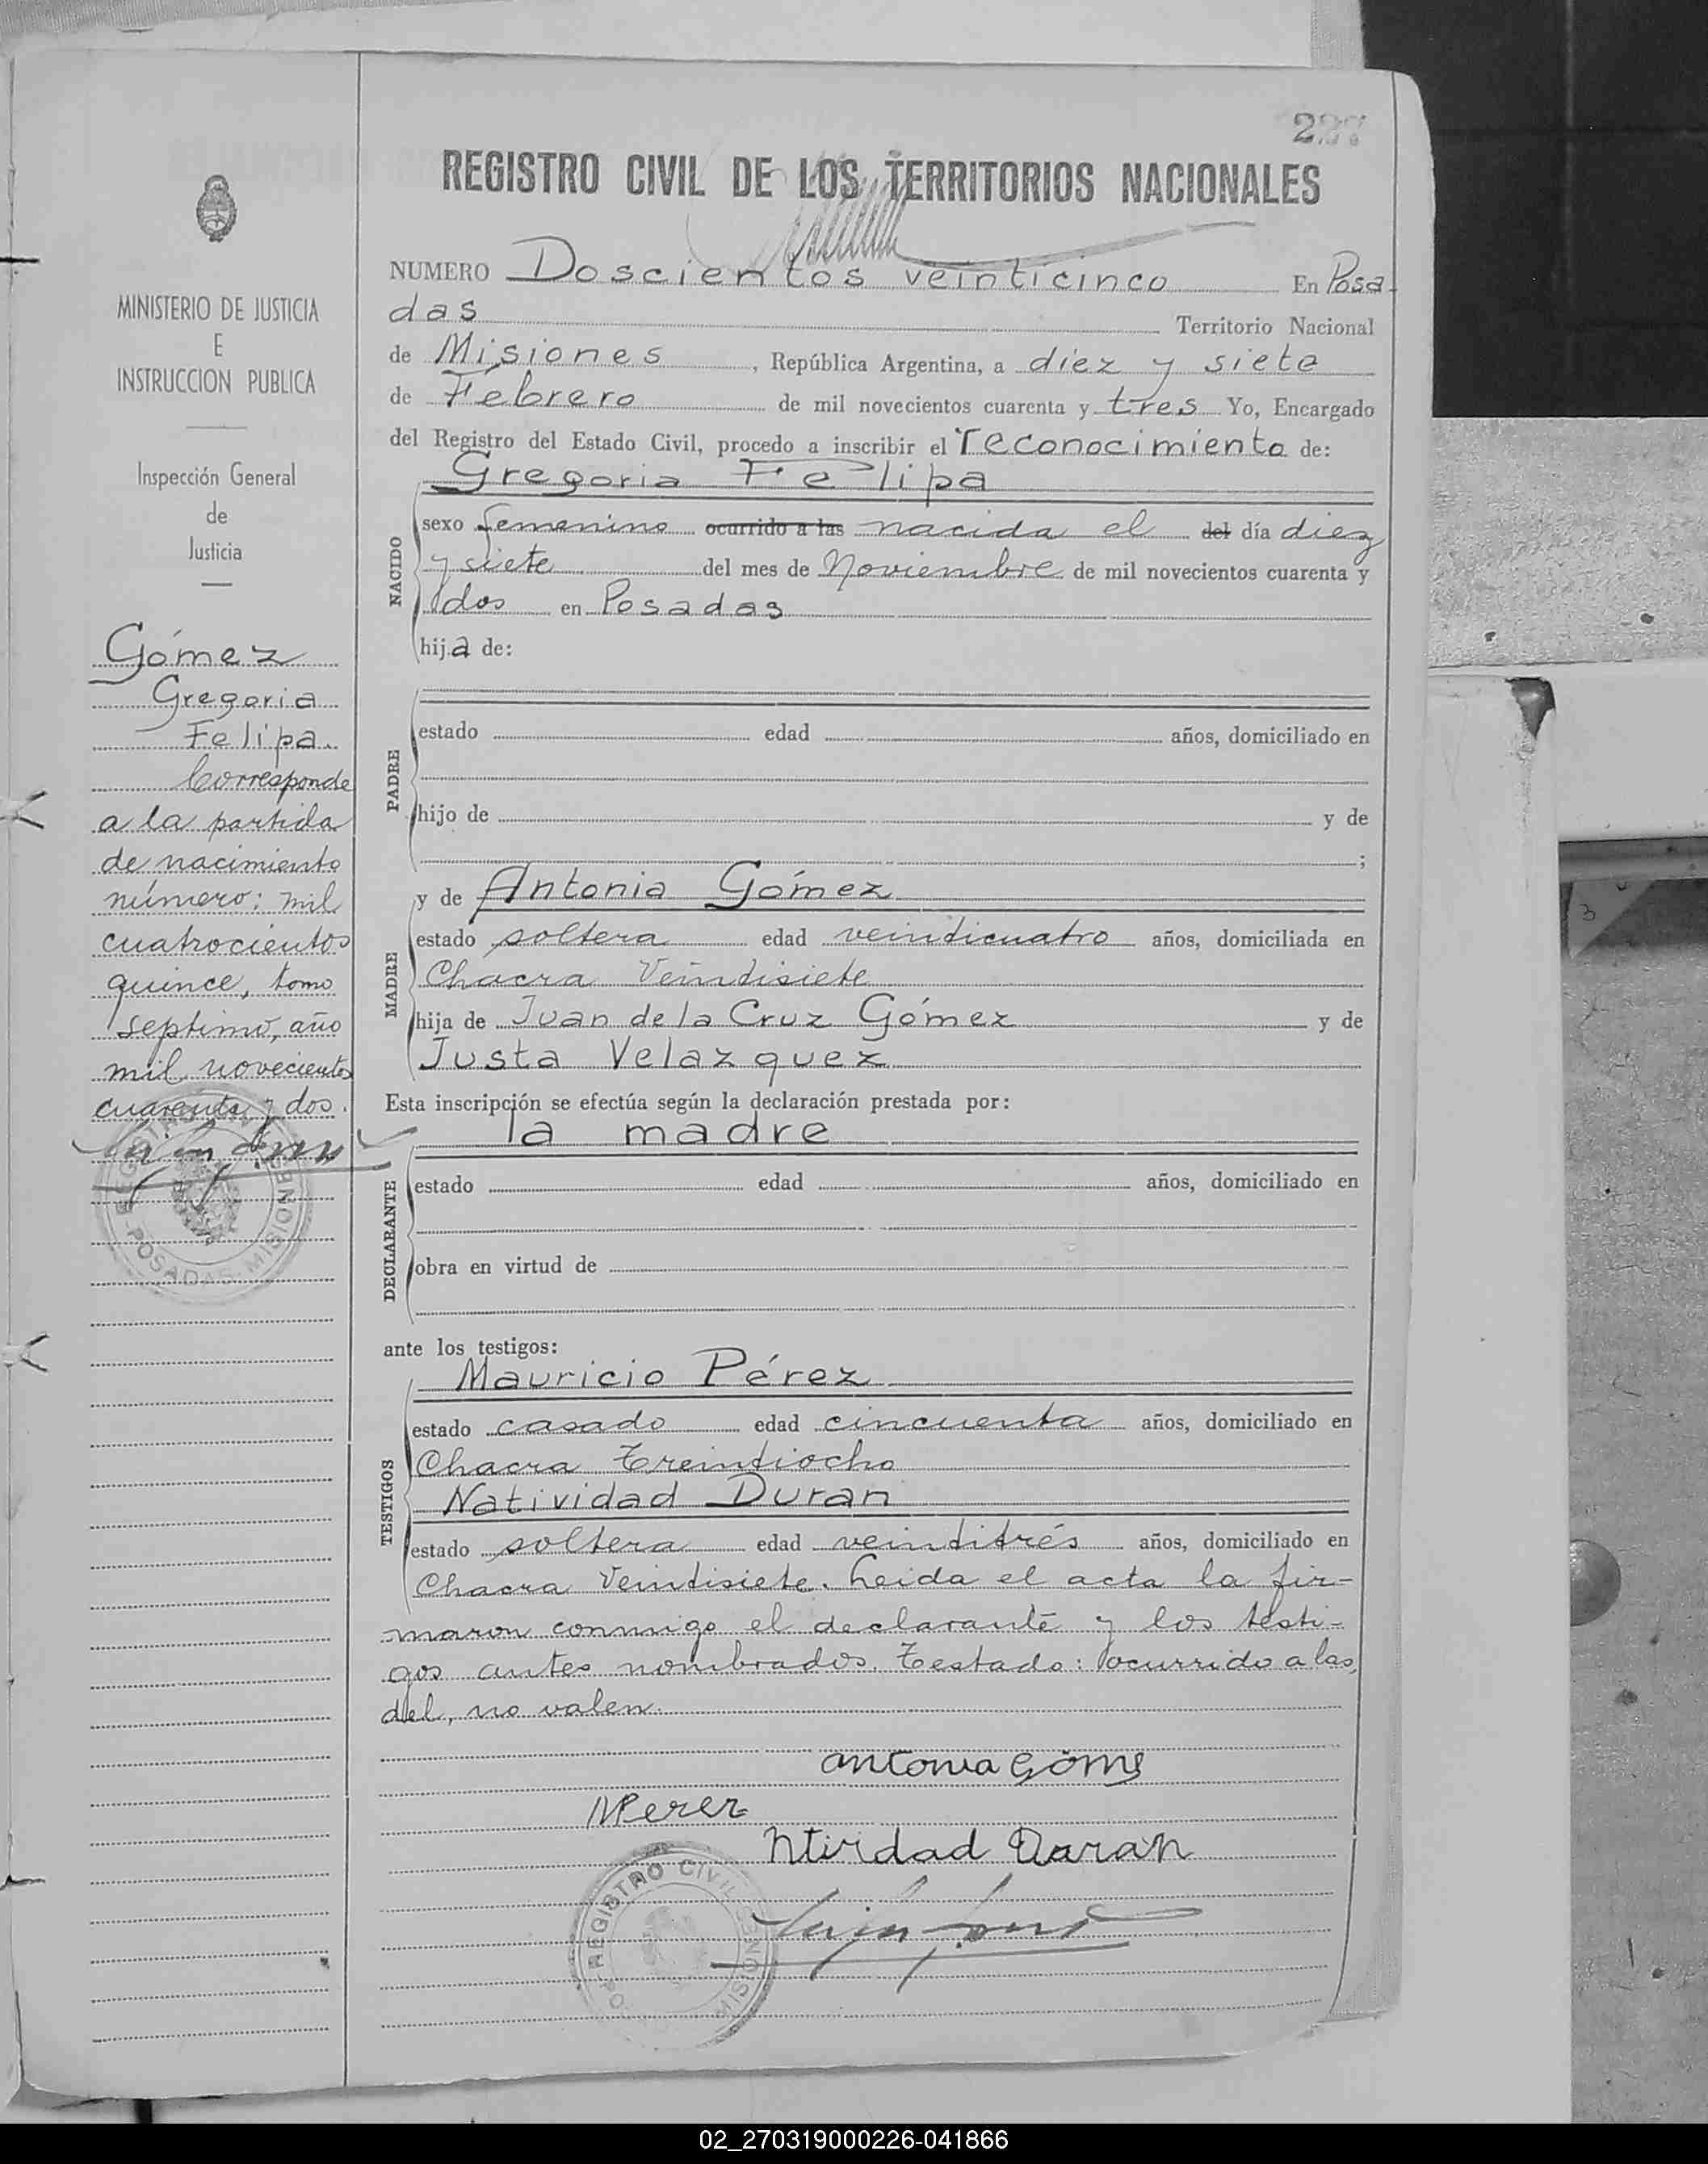 227
REGISTRO CIVIL DE LOS TERRITORIOS NACIONALES
MINISTERIO DE JUSTICIA
E
INSTRUCCION PUBLICA
Inspección General
de
Justicia
Gómez
Gregoria
Felipa.
Corresponde
a la partida
de nacimiento
número: mil
cuatrocientos
quince, tomo
septimo, año
mil novecientos
cuarenta y dos.
REGISTRO CIVIL POSADAS MISIONES
NUMERO Doscientos veinticinco En Posa-
das Territorio Nacional
de Misiones, República Argentina, a diez y siete
de Febrero de mil novecientos cuarenta y tres Yo, Encargado
del Registro del Estado Civil, procedo a inscribir el reconocimiento de:
Gregoria Felipa
NACIDO
sexo femenino ocurrido a las nacida el del día diez
y siete del mes de Noviembre de mil novecientos cuarenta y
dos en Posadas
hija de:
PADRE
estado edad años, domiciliado en
hijo de y de
;
MADRE
y de Antonia Gómez
estado soltera edad veinticuatro años, domiciliada en
Chacra Veintisiete
hija de Juan de la Cruz Gómez y de
Justa Velazquez
Esta inscripción se efectúa según la declaración prestada por:
la madre
DECLARANTE
estado edad años, domiciliado en
obra en virtud de
ante los testigos:
TESTIGOS
Mauricio Pérez
estado casado edad cincuenta años, domiciliado en
Chacra Treintiocho
Natividad Duran
estado soltera edad veintitrés años, domiciliado en
Chacra Veintisiete. Leida el acta la fir-
maron conmigo el declarante y los testi-
gos antes nombrados. Testado: ocurrido a las,
del, no valen.
antonia Góms
MPerez
Ntividad Duran
REGISTRO CIVIL MISIONES
02_270319000226-041866